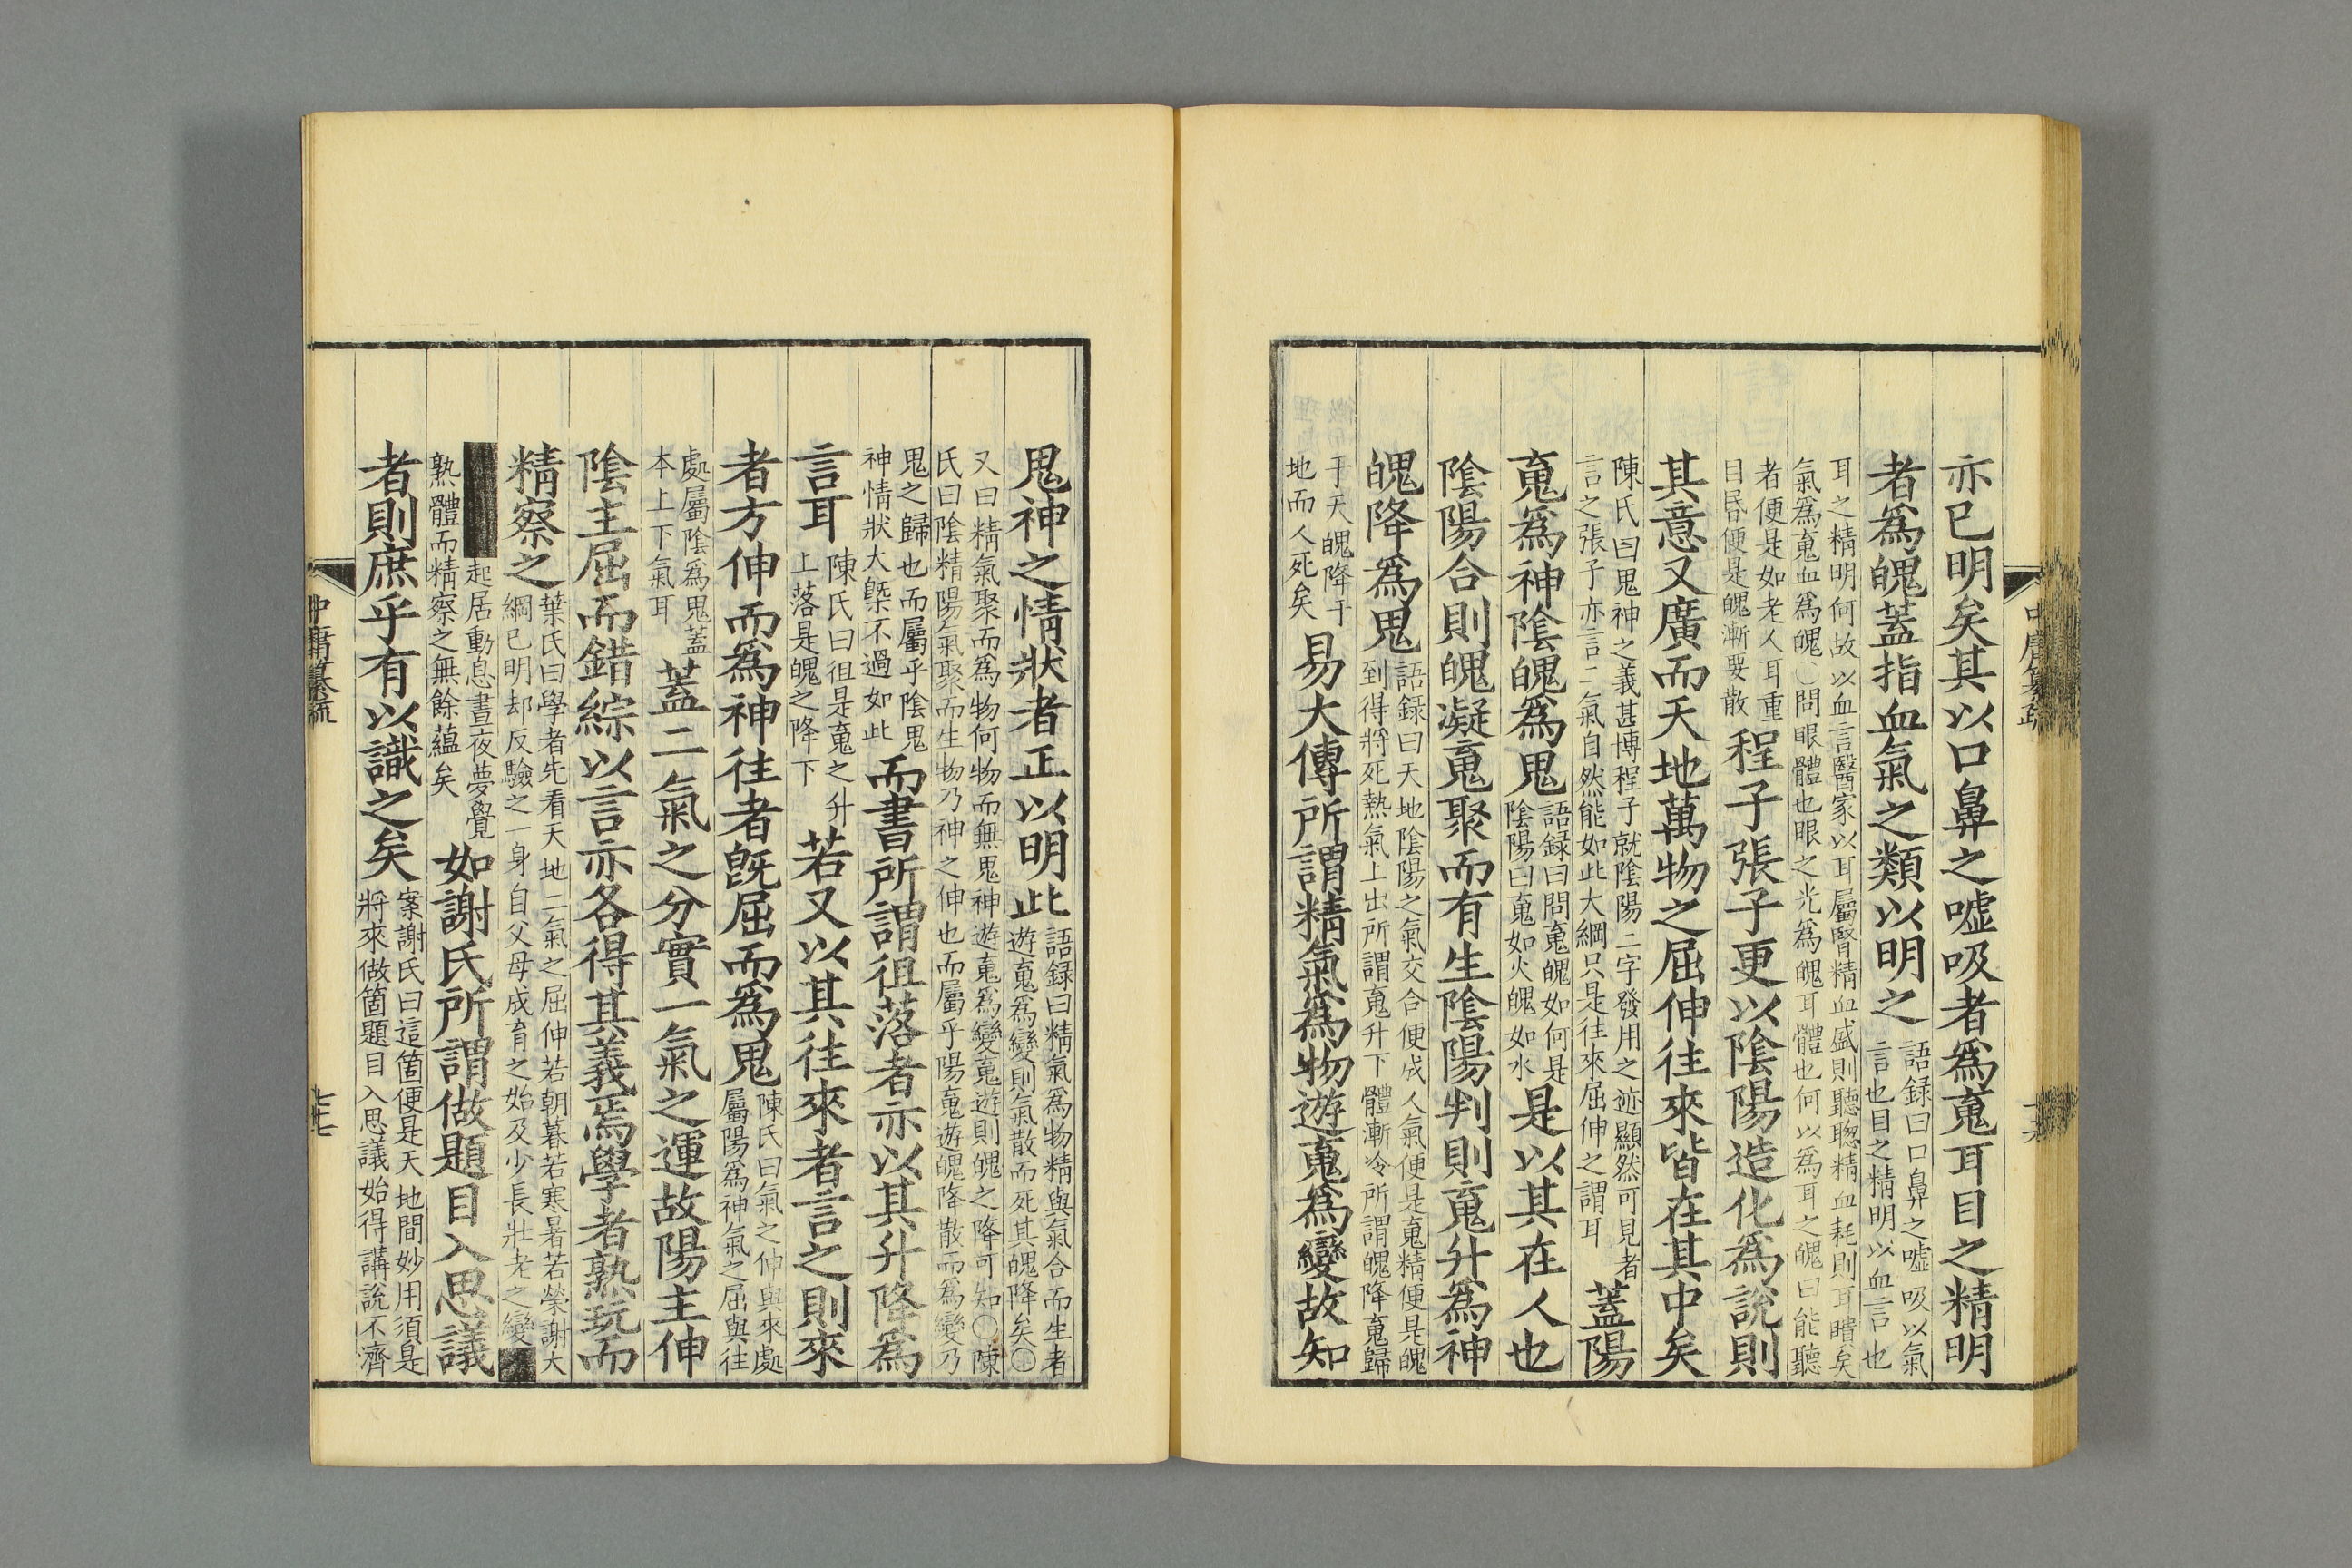 亦已明矣其以口鼻之噓吸者爲䰟耳目之精明
者爲魄蓋指血氣之類以明之
語録曰口鼻之噓吸以氣
言也目之精明以血言也
耳之精明何故以血言醫家以耳屬腎精血盛則聽聰精血耗則耳聵矣
氣爲䰟血爲魄○問眼體也眼之光爲魄耳體也何以爲耳之魄曰能聽
者便是如老人耳重
目昏便是魄漸要散
程子張子更以陰陽造化爲說則
其意又廣而天地萬物之屈伸往來皆在其中矣
陳氏曰鬼神之義甚博程子就陰陽二字發用之迹顯然可見者
言之張子亦言二氣自然能如此大綱只是往來屈伸之謂耳
蓋陽
䰟爲神陰魄爲鬼
語録曰問䰟魄如何是
陰陽曰䰟如火魄如水
是以其在人也
陰陽合則魄凝䰟聚而有生陰陽判則䰟升爲神
魄降爲鬼
語録曰天地陰陽之氣交合便成人氣便是䰟精便是魄
到得將死熱氣上出所謂䰟升下體漸冷所謂魄降䰟歸
于天魄降于
地而人死矣
易大傳所謂精氣爲物遊䰟爲變故知
中庸纂疏
鬼神之情狀者正以明此
語録曰精氣爲物精與氣合而生者
遊䰟爲變則氣散而死其魄降矣○
又曰精氣聚而爲物何物而無鬼神遊䰟爲變䰟遊則魄之降可知○陳
氏曰陰精陽氣聚而生物乃神之伸也而屬乎陽䰟遊魄降散而爲變乃
鬼之歸也而屬乎陰鬼
神情狀大槩不過如此
而書所謂徂落者亦以其升降爲
言耳
陳氏曰徂是䰟之升
上落是魄之降下
若又以其往來者言之則來
者方伸而爲神往者旣屈而爲鬼
陳氏曰氣之伸與來處
屬陽爲神氣之屈與往
處屬陰爲鬼蓋
本上下氣耳
蓋二氣之分實一氣之運故陽主伸
陰主屈而錯綜以言亦各得其義焉學者熟玩而
精察之
葉氏曰學者先看天地二氣之屈伸若朝暮若寒暑若榮謝大
綱已明却反驗之一身自父母成育之始及少長壯老之變
起居動息晝夜夢覺
熟體而精察之無餘蘊矣
如謝氏所謂做題目入思議
者則庶乎有以識之矣
案謝氏曰這箇便是天地間妙用須是
將來做箇題目入思議始得講說不濟
中庸纂疏
七十七